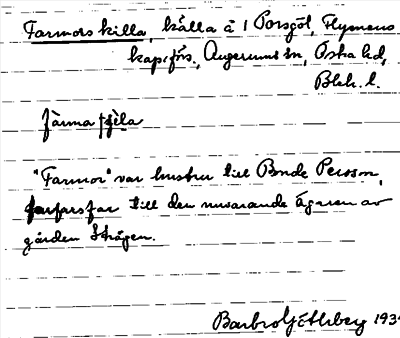 Farmors killa, källa å 1 Porsgöl, Flymens
kap.förs., Augerums sn, Östra hd,
Blek. l.
Jämna
"Farmor" var hustru till Bonde Persson,
farfars far till den nuvarande ägaren av
gården
Barbro Götlberg 193